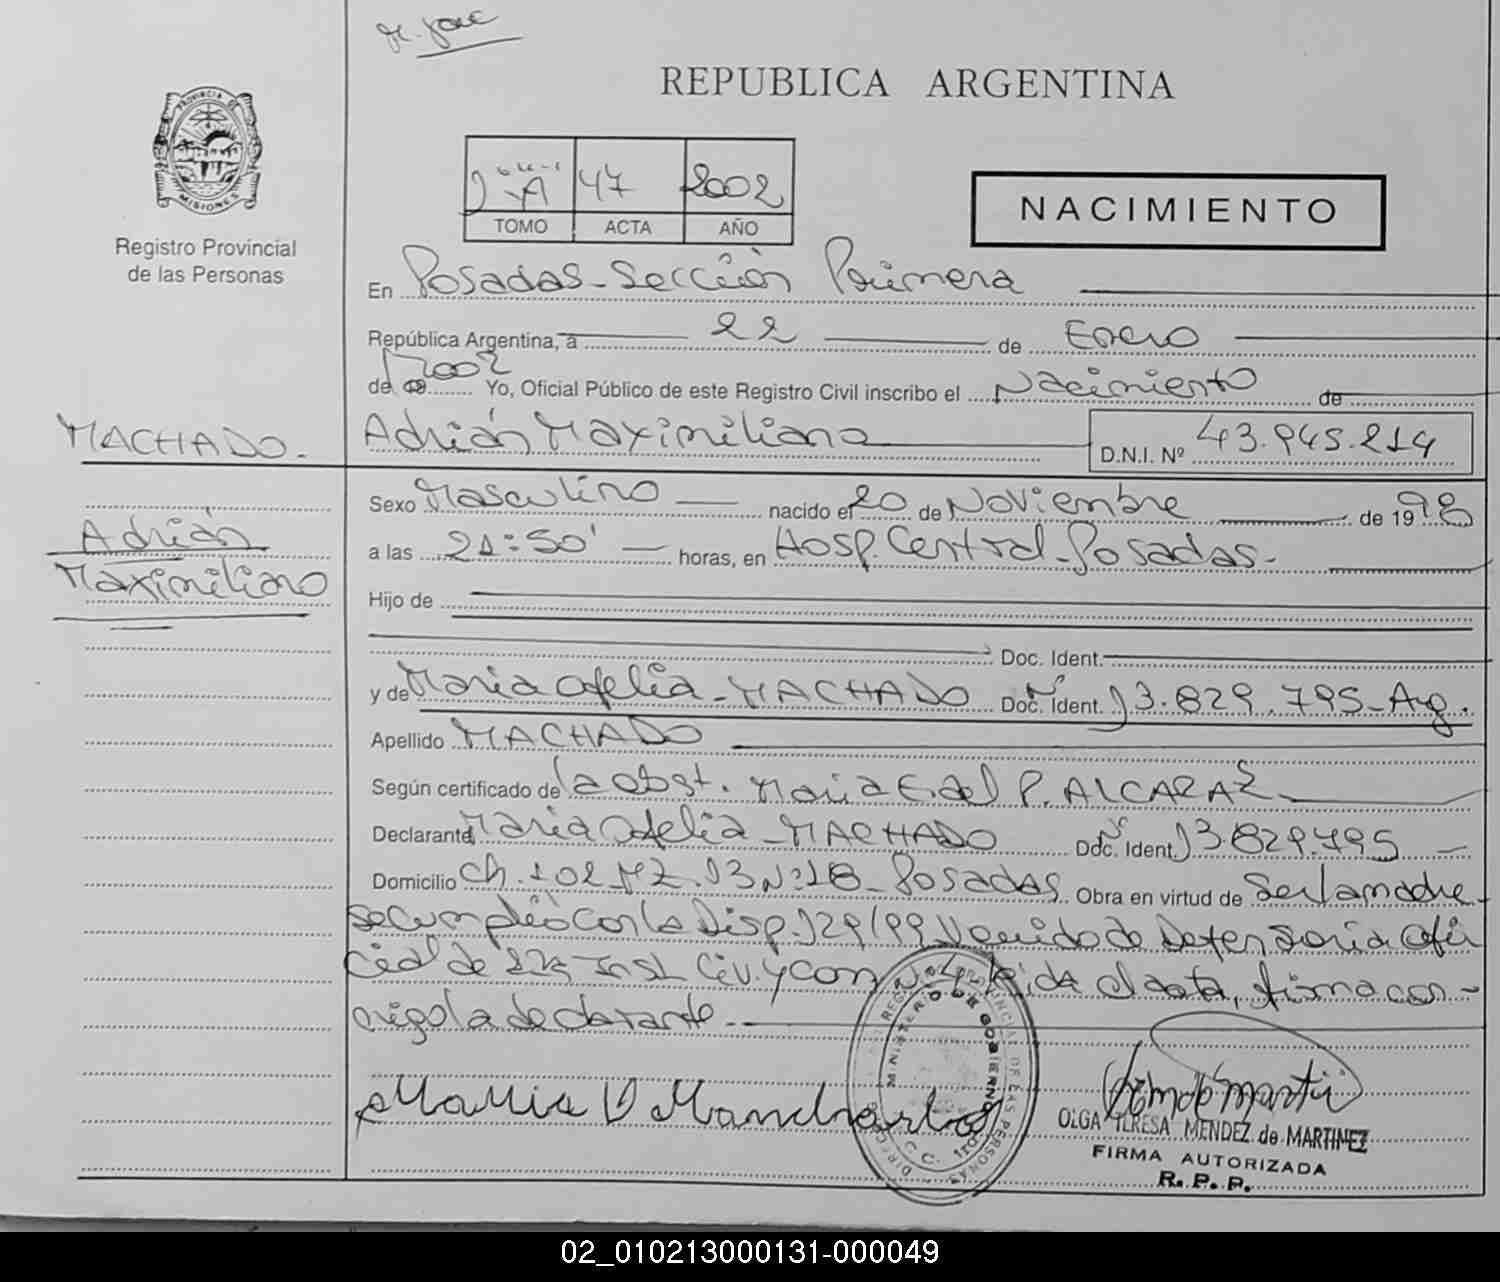 REPUBLICA ARGENTINA
PROVINCIA DE MISIONES
Registro Provincial
de las Personas
A 47 2002
TOMO ACTA AÑO
NACIMIENTO
En Posadas - Sección Primera
República Argentina, a 22 de Enero
de 2002 Yo, Oficial Público de este Registro Civil inscribo el Nacimiento de
MACHADO.
Adrián Maximiliano
D.N.I. Nº 43.945.214
Adrián
Maximiliano
Sexo Masculino nacido el 20 de Noviembre de 1998
a las 21:50' horas, en Hosp. Central - Posadas -
Hijo de
Doc. Ident.
y de Maria Ofelia - MACHADO Doc. Ident. Nº 13.829.795 - Arg.
Apellido MACHADO
Según certificado de la obst. Maria E. del P. ALCARAZ
Declarante Maria Ofelia - MACHADO Doc. Ident. Nº 13.829.795 -
Domicilio Ch. 102 MZ. 13 Nº 18 - Posadas Obra en virtud de Ser la madre -
se cumplió con la Disp. 129/99 Venido de Defensoria Ofi
cial de Inst. Civ. y Com. Nº 4 leida el acta, firma con-
migo la declarante -
MINISTERIO DE GOBIERNO
OLGA TERESA MENDEZ de MARTINEZ
FIRMA AUTORIZADA
R. P. P.
02_010213000131-000049